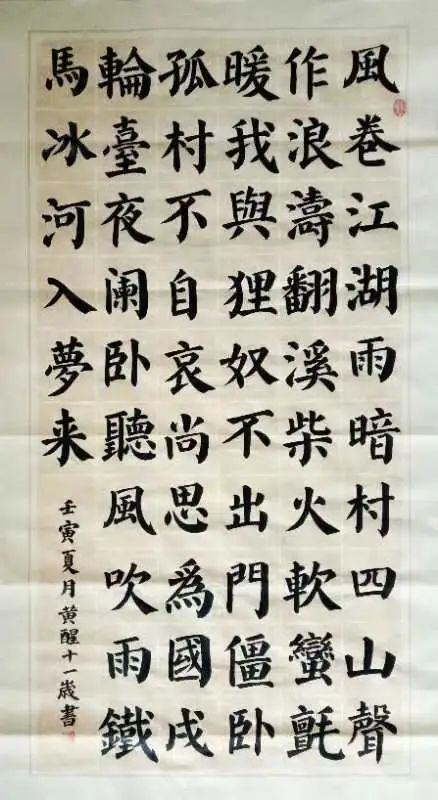 風卷江湖雨暗村四山聲
作浪濤翻溪柴火軟蠻氈
暖我與狸奴不出門僵卧
孤村不自哀尚思為國戍
輪臺夜阑卧聽風吹雨鐵
馬冰河入夢来
壬寅夏月黄醒十一歲書